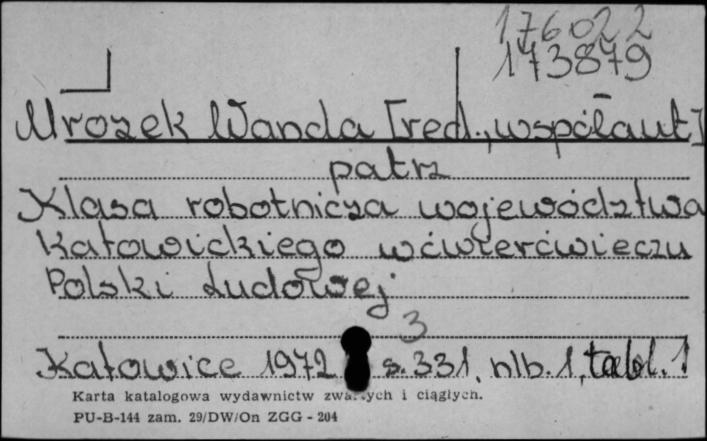 176022
173879
Mrozek Wanda [red., współaut]
patrz
Klasa robotnicza województwa
Katowickiego w ćwierćwieczu
Polski Ludowej
3
Katowice 1972 s. 331, nlb. 1, tabl. 1
Karta katalogowa wydawnictw zwartych i ciągłych.
PU-B-144 zam. 29/DW/On ZGG - 204